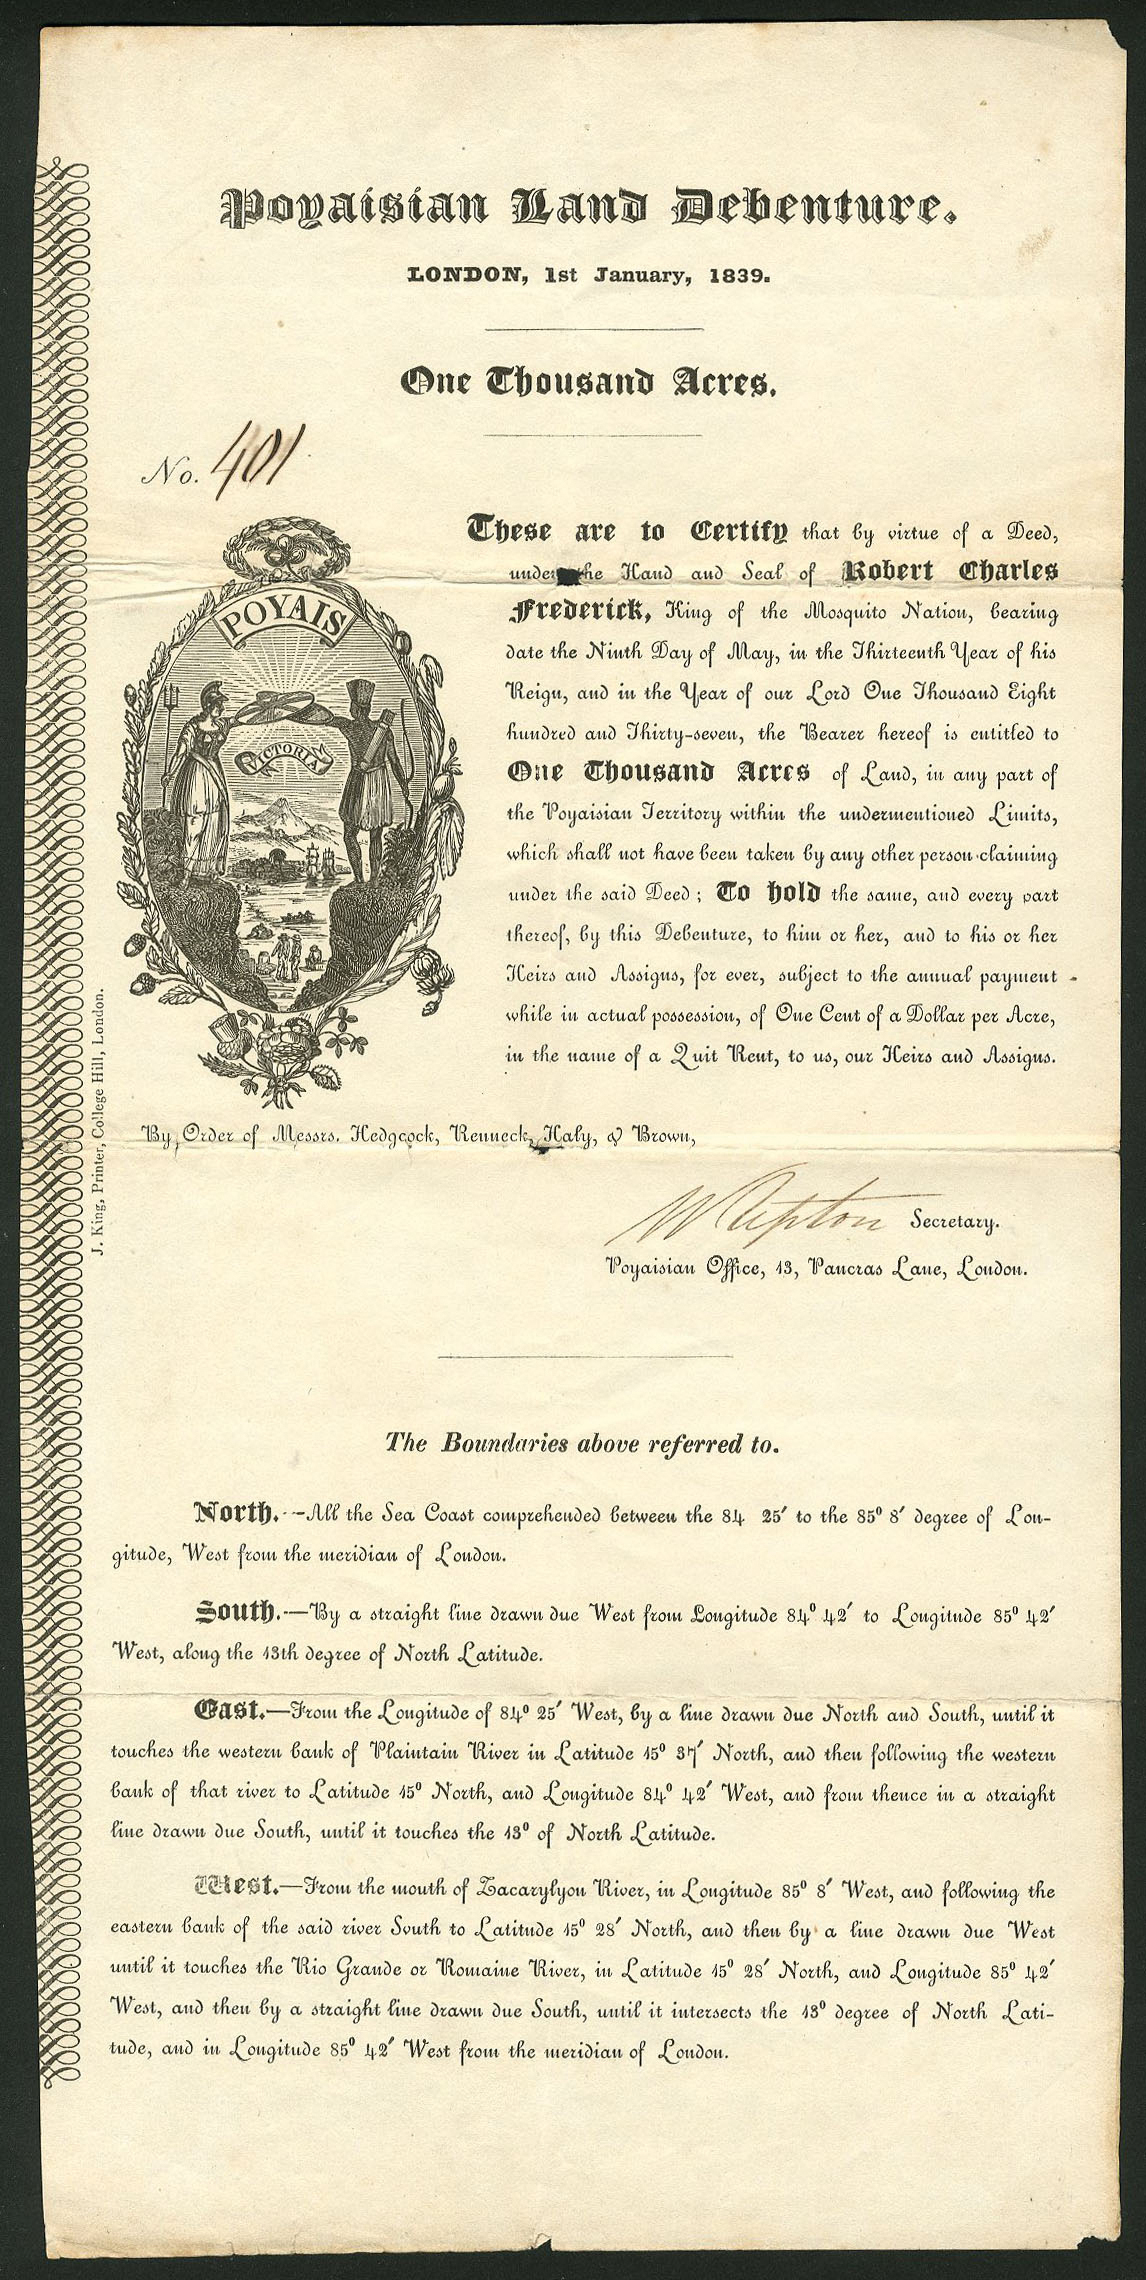 Poyaisian Land Debenture.
LONDON, 1st January, 1839.
One Thousand Acres.
No. 401
POYAIS
VICTORIA
These are to Certify that by virtue of a Deed,
under the Hand and Seal of Robert Charles
Frederick, King of the Mosquito Nation, bearing
date the Ninth Day of May, in the Thirteenth Year of his
Reign, and in the Year of our Lord One Thousand Eight
hundred and Thirty-seven, the Bearer hereof is entitled to
One Thousand Acres of Land, in any part of
the Poyaisian Territory within the undermentioned Limits,
which shall not have been taken by any other person claiming
under the said Deed; To hold the same, and every part
thereof, by this Debenture, to him or her, and to his or her
Heirs and Assigns, for ever, subject to the annual payment
while in actual possession, of One Cent of a Dollar per Acre,
in the name of a Quit Rent, to us, our Heirs and Assigns.
By Order of Messrs. Hedgcock, Renneck, Haly, & Brown,
W Upton Secretary.
Poyaisian Office, 13, Pancras Lane, London.
J. King, Printer, College Hill, London.
The Boundaries above referred to.
North.—All the Sea Coast comprehended between the 84 25′ to the 85⁰ 8′ degree of Lon-
gitude, West from the meridian of London.
South.—By a straight line drawn due West from Longitude 84⁰ 42′ to Longitude 85⁰ 42′
West, along the 13th degree of North Latitude.
East.—From the Longitude of 84⁰ 25′ West, by a line drawn due North and South, until it
touches the western bank of Plaintain River in Latitude 15⁰ 37′ North, and then following the western
bank of that river to Latitude 15⁰ North, and Longitude 84⁰ 42′ West, and from thence in a straight
line drawn due South, until it touches the 13⁰ of North Latitude.
West.—From the mouth of Zacarylyon River, in Longitude 85⁰ 8′ West, and following the
eastern bank of the said river South to Latitude 15⁰ 28′ North, and then by a line drawn due West
until it touches the Rio Grande or Romaine River, in Latitude 15⁰ 28′ North, and Longitude 85⁰ 42′
West, and then by a straight line drawn due South, until it intersects the 13⁰ degree of North Lati-
tude, and in Longitude 85⁰ 42′ West from the meridian of London.